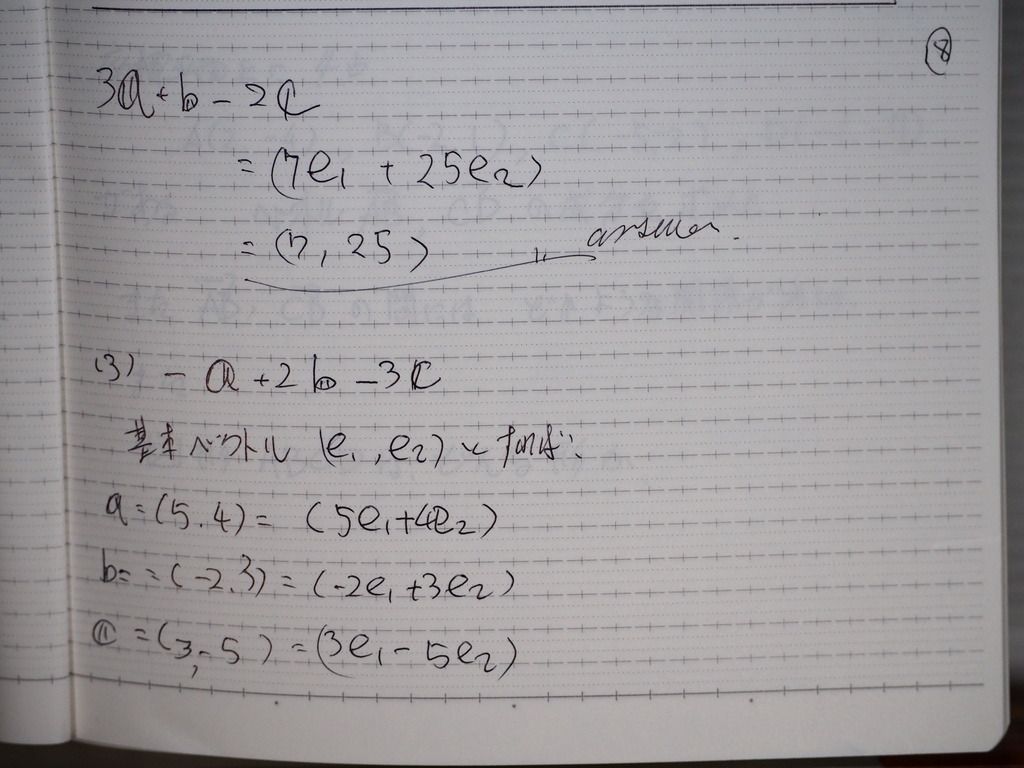 ⑧
3a+b-2c
=(7e₁ + 25e₂)
=(7, 25) ,, answer.
(3) -a+2b-3c
基本ベクトル (e₁, e₂) とすれば、
a=(5.4)= (5e₁+4e₂)
b= =(-2.3)=(-2e₁+3e₂)
c =(3,-5)=(3e₁-5e₂)